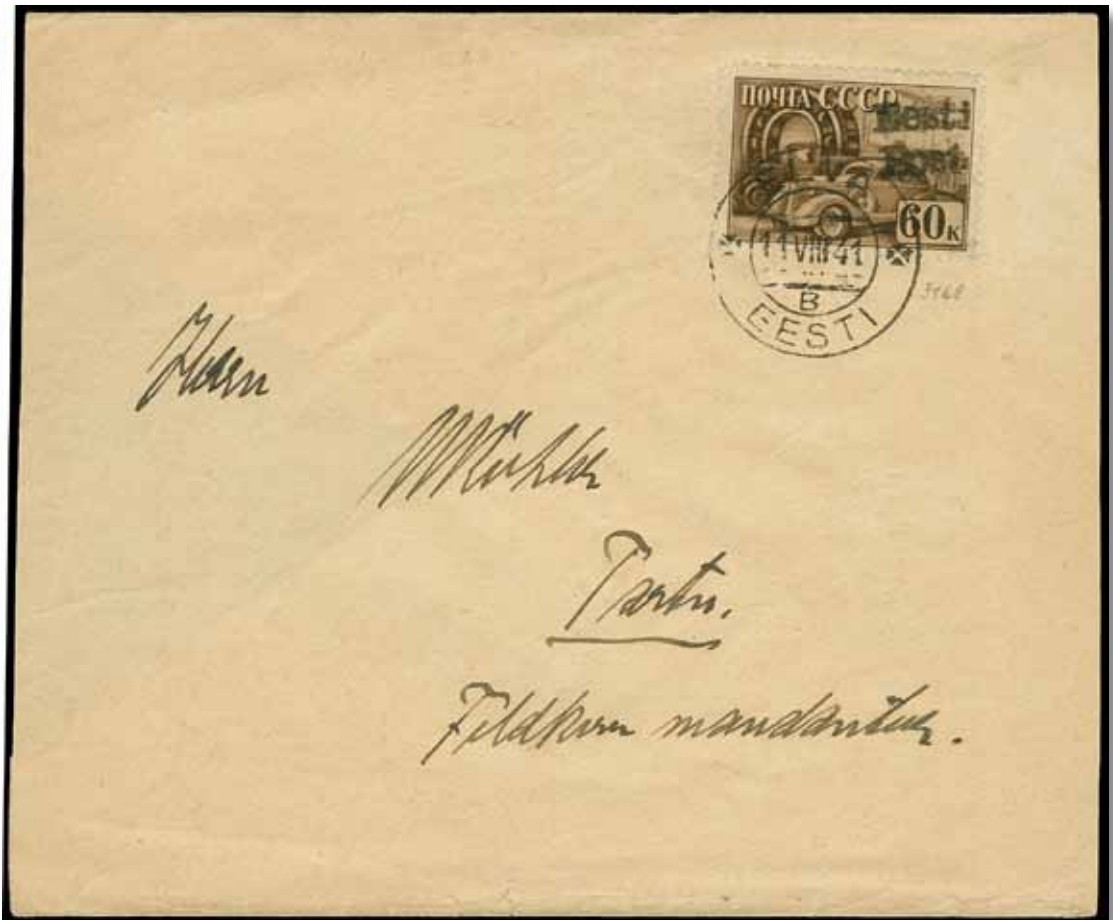 ПОЧТА СССР
Eesti
Post
60 к
11 VIII 41
B
EESTI
Herrn
Tartu.
Feldkommandantur.